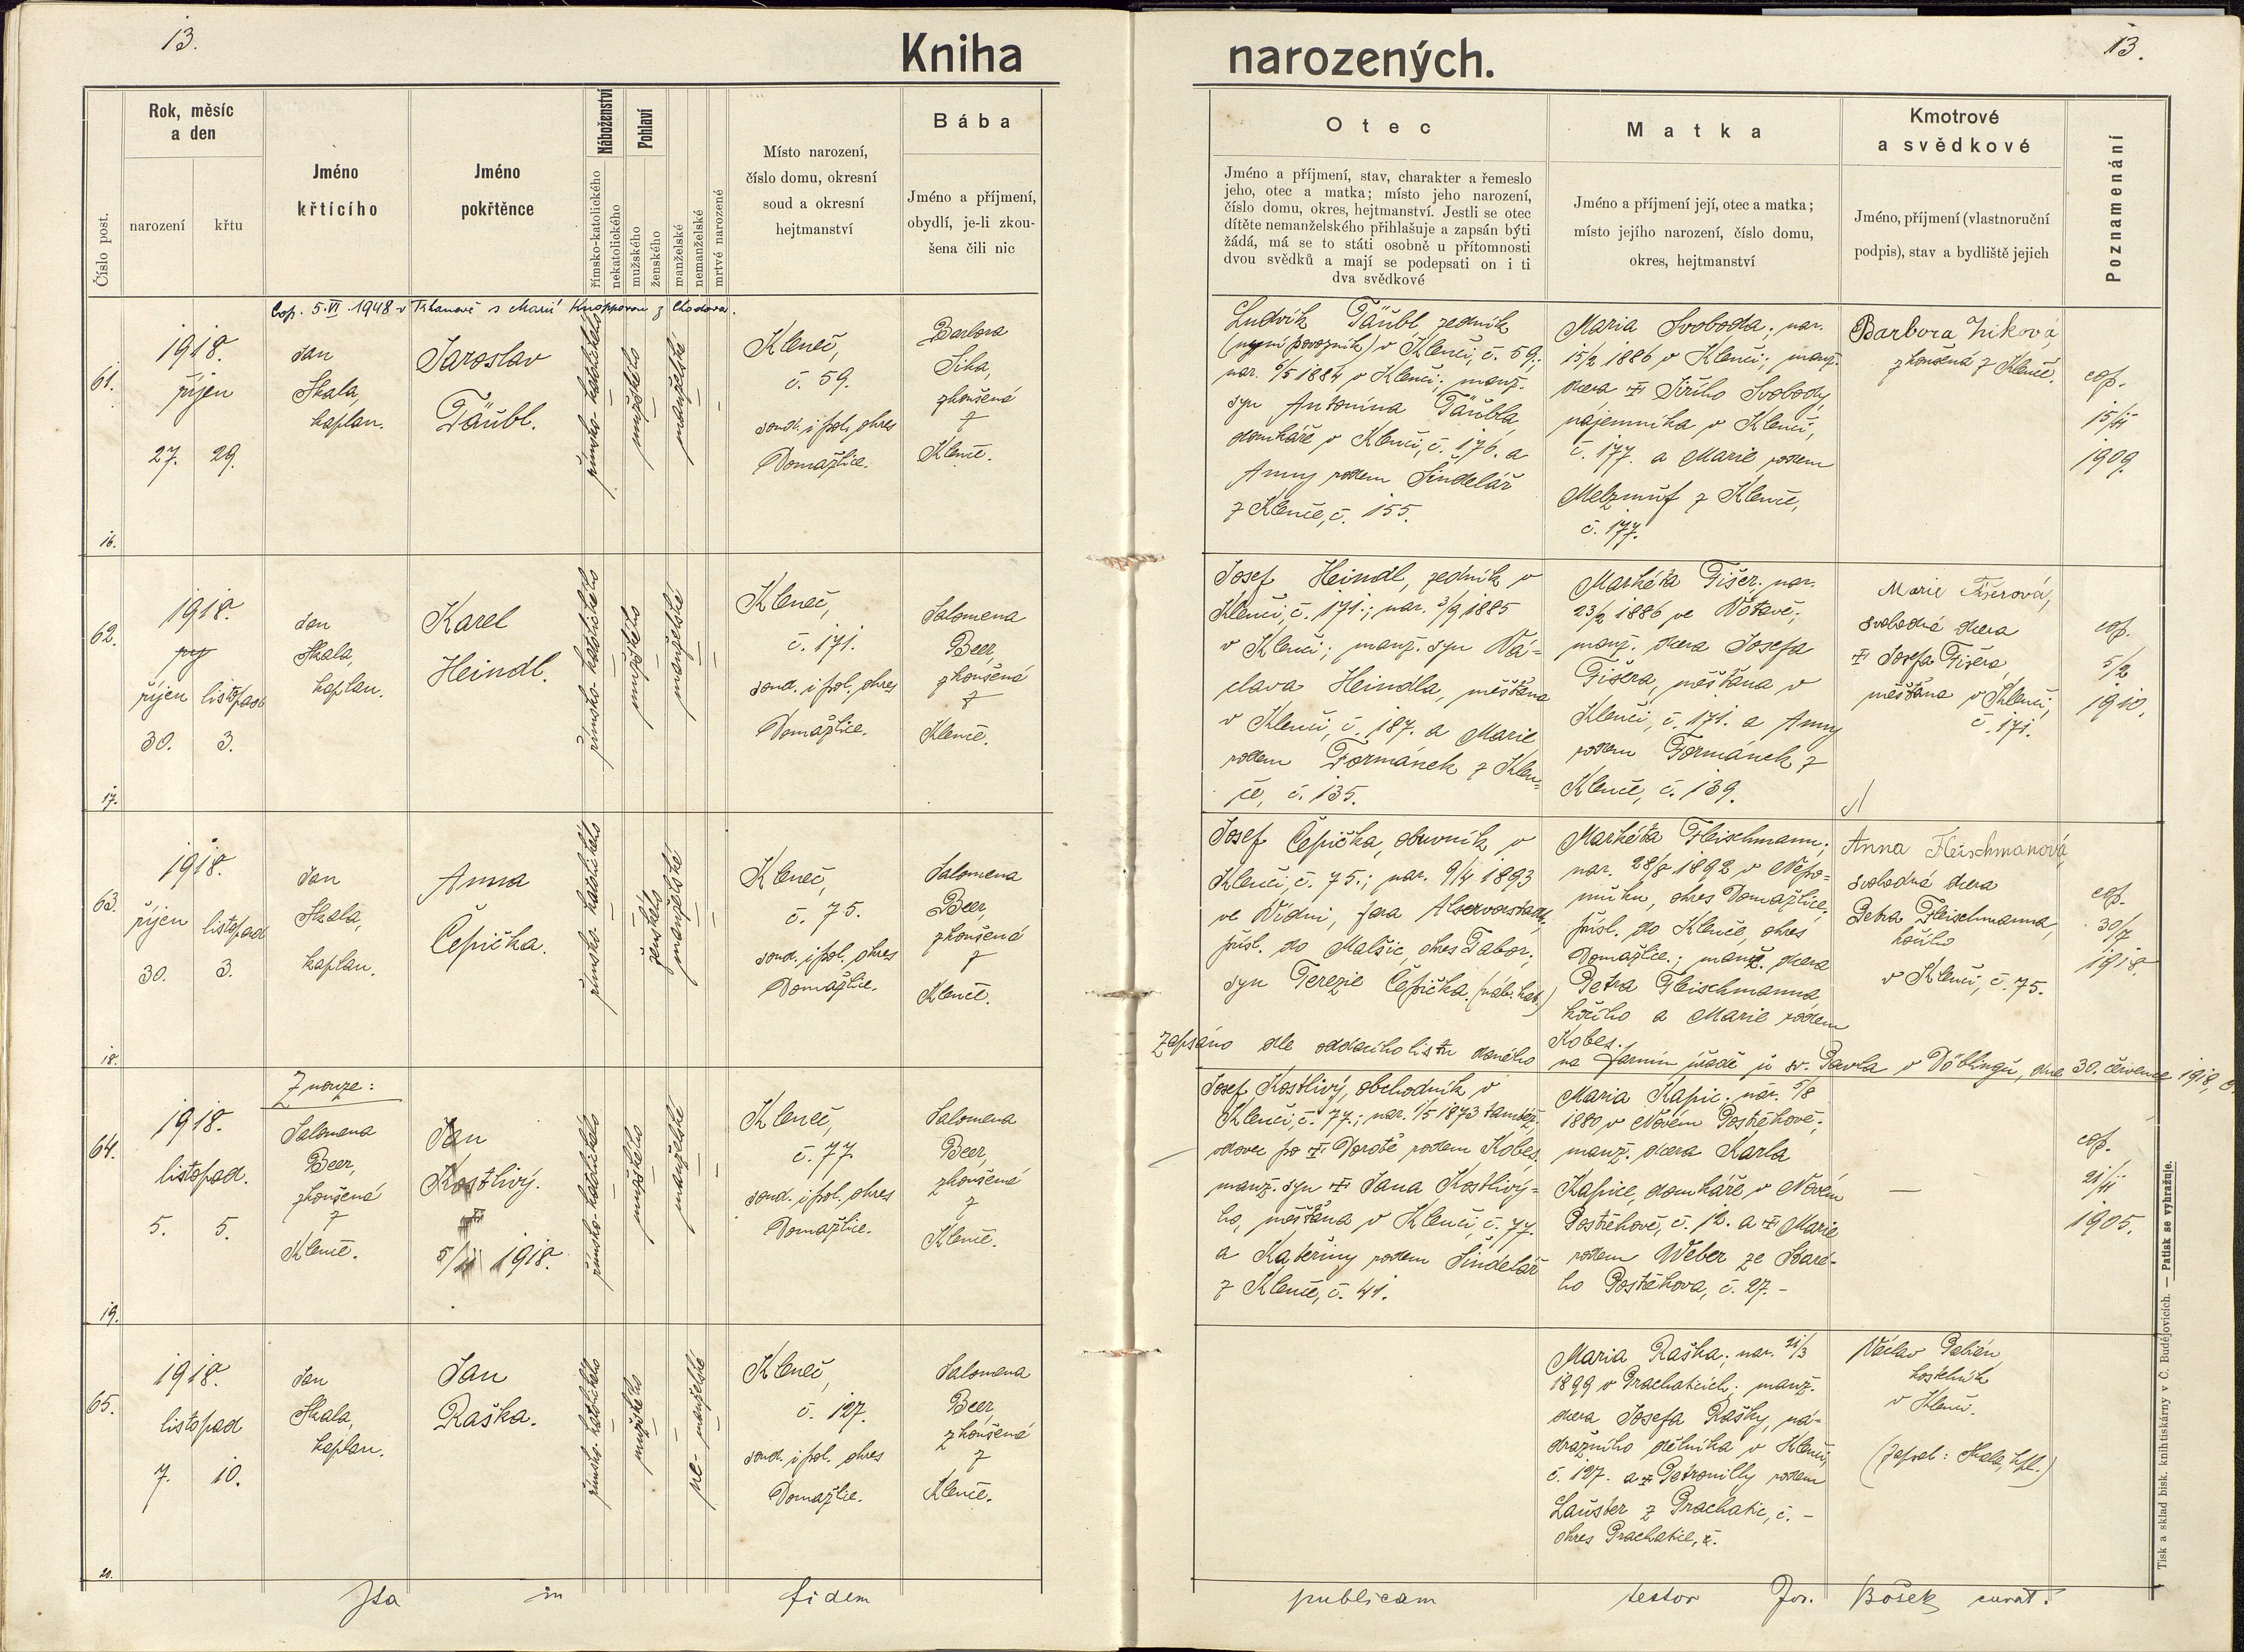 13.
13.
Kniha
narozených.
Číslo post.
Rok, měsíc
a den
narození
křtu
Jméno
křtícího
Jméno
pokřtěnce
Náboženství
římsko-katolického
nekatolického
Pohlaví
mužského
ženského
manželské
nemanželské
mrtvě narozené
Místo narození,
číslo domu, okresní
soud a okresní
hejtmanství
Bába
Jméno a příjmení,
obydlí, je-li zkou-
šena čili nic
Otec
Jméno a příjmení, stav, charakter a řemeslo
jeho, otec a matka; místo jeho narození,
číslo domu, okres, hejtmanství. Jestli se otec
dítěte nemanželského přihlašuje a zapsán býti
žádá, má se to státi osobně u přítomnosti
dvou svědků a mají se podepsati on i ti
dva svědkové
Matka
Jméno a příjmení její, otec a matka;
místo jejího narození, číslo domu,
okres, hejtmanství
Kmotrové
a svědkové
Jméno, příjmení (vlastnoruční
podpis), stav a bydliště jejich
Poznamenání
Cop. 5.VI.1948 v Trhanově s Marií Knopporou z Chodova.
61.
1918.
říjen
27. 29.
16.
Jan
Skala,
kaplan.
Jaroslav
Täubl.
římsko-katolického
mužského
manželské
Kleneč,
č. 59.
soud. i pol. okres
Domažlice.
Barbora
Sika,
zkoušená
z
Klenče.
Ludvík Täubl, zedník
(nyní povozník) v Klenčí, č. 59.;
nar. 6/5 1884 v Klenčí; manž.
syn Antonína Täubla,
domkáře v Klenčí, č. 176. a
Anny rodem Šindelář
z Klenče, č. 155.
Maria Svoboda; nar.
15/2 1886 v Klenčí; manž.
dcera † Jiřího Svobody,
nájemníka v Klenčí,
č. 177. a Marie rodem
z Klenče,
č. 177.
Barbora
zkoušená z Klenče.
cop.
15/11
1909.
62.
1918.
říjen listopad
30. 3.
17.
Jan
Skala,
kaplan.
Karel
Heindl.
římsko-katolického
mužského
manželské
Kleneč,
č. 171.
soud. i pol. okres
Domažlice.
Salomena
Beer,
zkoušená
z
Klenče.
Josef Heindl, zedník v
Klenčí, č. 171.; nar. 3/9 1885
v Klenčí; manž. syn Vá-
clava Heindla, měšťana
v Klenčí, č. 187. a Marie
rodem Formánek z Klen-
če, č. 135.
Markéta Fišer; nar.
23/2 1886 ve Votavě;
manž. dcera Josefa
Fišera, měšťana v
Klenčí, č. 171. a Anny
rodem Formánek z
Klenče, č. 139.
Marie Fišerová,
svobodná dcera
† Josefa Fišera,
měšťana v Klenčí,
č. 171.
cop.
5/2
1910.
63.
1918.
říjen listopad
30. 3.
18.
Jan
Skala,
kaplan.
Anna
Čepička.
římsko-katolického
ženského
manželské
Kleneč,
č. 75.
soud. i pol. okres
Domažlice.
Salomena
Beer,
zkoušená
z
Klenče.
Josef Čepička, obuvník v
Klenčí, č. 75.; nar. 9/4 1893
ve Vídni, fara Alservorstadt,
přísl. do Malšic, okres Tabor;
syn Terezie Čepička. (náb. kat.)
Markéta Fleischmann;
nar. 28/8 1892 v Nepo-
muku, okres Domažlice;
přísl. do Klenče, okres
Domažlice.; manž. dcera
Petra Fleischmanna,
a Marie rodem
Kobes.
Anna Fleischmanová,
svobodná dcera
Petra Fleischmanna,
v Klenčí, č. 75.
cop.
30/7
1918.
Zapsáno dle oddacího listu daného na farním úřadě u sv. Pavla v Döblingu, dne 30. července 1918,
64.
1918.
listopad.
5. 5.
19.
Z nouze:
Salomena
Beer,
zkoušená
z
Klenče.
Jan
Kostlivý.
†
5/11 1918.
římsko-katolického
mužského
manželské
Kleneč,
č. 77.
soud. i pol. okres
Domažlice.
Salomena
Beer,
zkoušená
z
Klenče.
Josef Kostlivý, obchodník v
Klenčí, č. 77.; nar. 1/5 1873 tamtéž,
vdovec po † Dorotě rodem Kobes,
manž. syn † Jana Kostlivý-
ho, měšťana v Klenčí, č. 77.
a Kateřiny rodem Šindelář
z Klenče, č. 41.
Maria Kapic; nar. 5/8
1880, v Novém Postřekově;
manž. dcera Karla
Kapice, domkáře v Novém
Postřekově, č. 12. a † Marie
rodem Weber ze Staré-
ho Postřekova, č. 27. -
—
cop.
21/11
1905.
65.
1918.
listopad
7. 10.
20.
Jan
Skala,
kaplan.
Jan
Raška.
římsko-katolického
mužského
ne-manželské
Kleneč,
č. 127.
soud. i pol. okres
Domažlice.
Salomena
Beer,
zkoušená
z
Klenče.
Maria Raška; nar. 21/3
1899 v Prachaticích; manž.
dcera Josefa Rašky, ná-
dražního dělníka v Klenčí,
č. 127. a † Petronilly rodem
Lauster z Prachatic, č. -
okres Prachatice, č.
Václav
kostelník
v Klenčí.
(zapsal: Skala, kpl.)
Ita in fidem publicam testor Jos. Bošek curat.
Tisk a sklad bisk. knihtiskárny v Č. Budějovicích. — Patisk se vyhražuje.